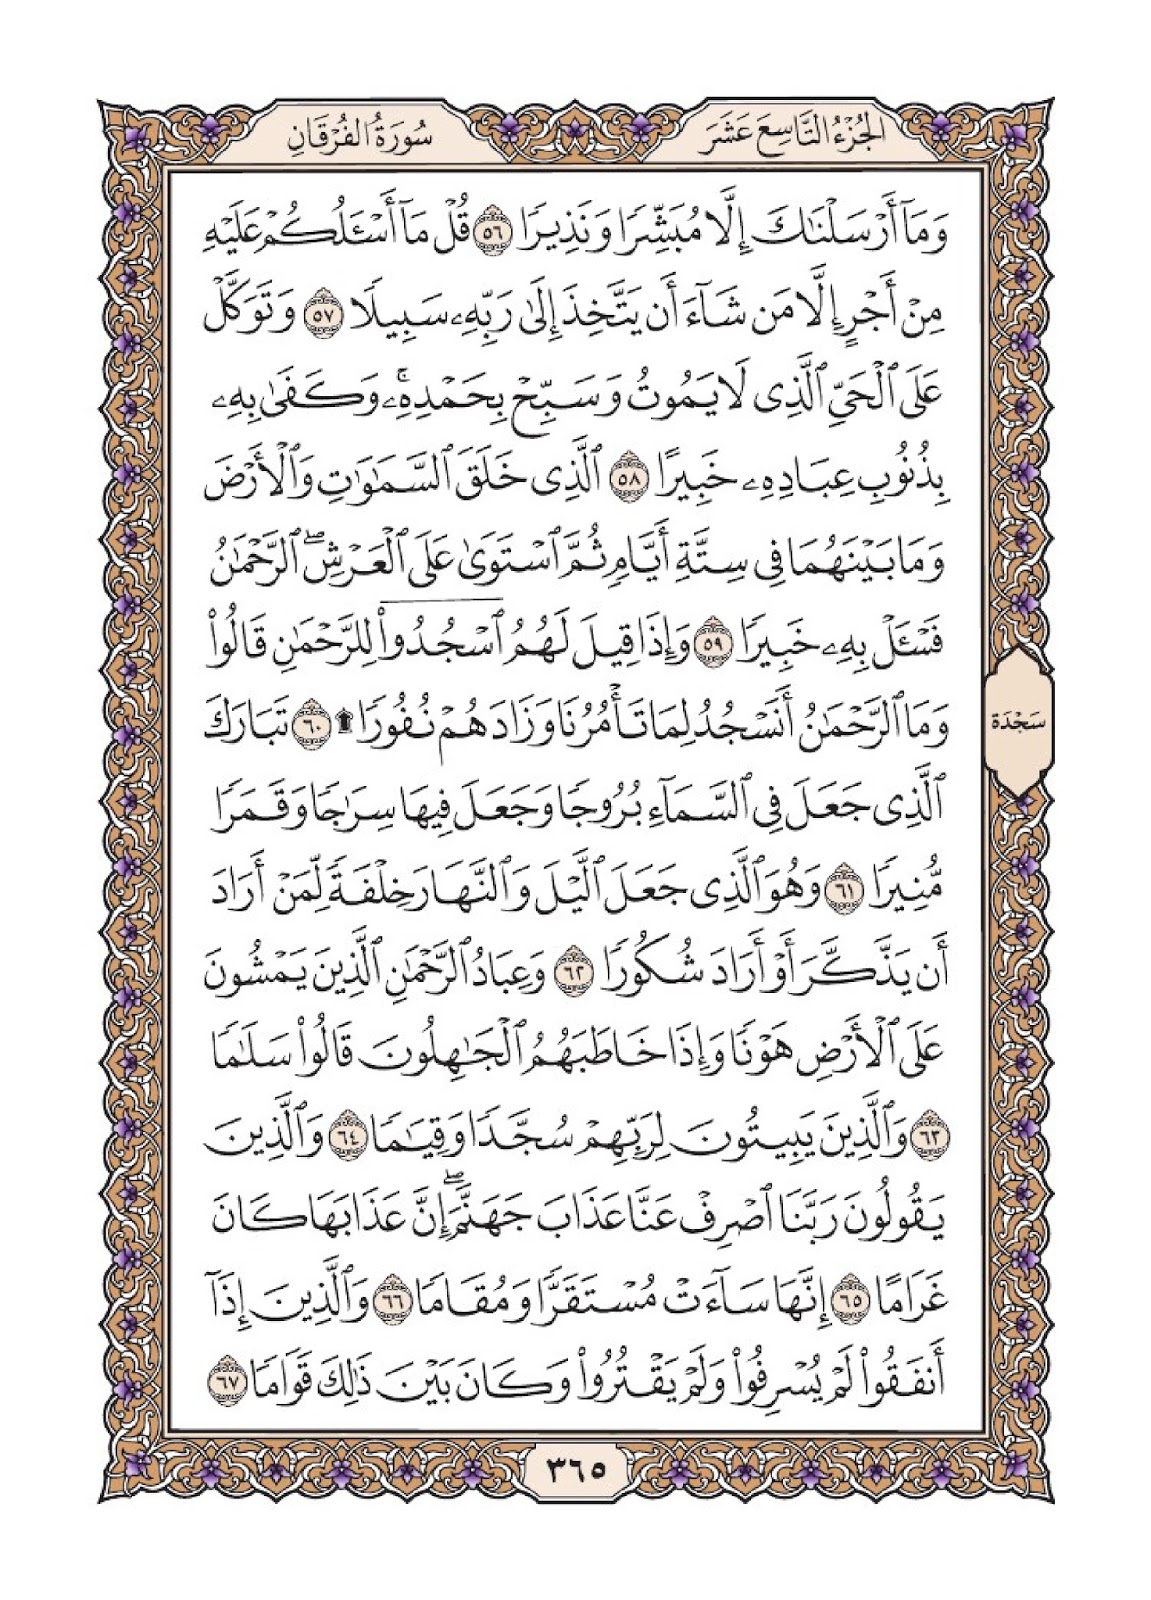 الجُزْءُ التَّاسِعَ عَشَرَ
سُورَةُ الفُرْقَانِ
وَمَآ أَرْسَلْنَٰكَ إِلَّا مُبَشِّرٗا وَنَذِيرٗا ٥٦ قُلْ مَآ أَسْـَٔلُكُمْ عَلَيْهِ
مِنْ أَجْرٍ إِلَّا مَن شَآءَ أَن يَتَّخِذَ إِلَىٰ رَبِّهِۦ سَبِيلٗا ٥٧ وَتَوَكَّلْ
عَلَى ٱلْحَيِّ ٱلَّذِى لَا يَمُوتُ وَسَبِّحْ بِحَمْدِهِۦۚ وَكَفَىٰ بِهِۦ
بِذُنُوبِ عِبَادِهِۦ خَبِيرًا ٥٨ ٱلَّذِى خَلَقَ ٱلسَّمَٰوَٰتِ وَٱلْأَرْضَ
وَمَا بَيْنَهُمَا فِى سِتَّةِ أَيَّامٖ ثُمَّ ٱسْتَوَىٰ عَلَى ٱلْعَرْشِۖ ٱلرَّحْمَٰنُ
فَسْـَٔلْ بِهِۦ خَبِيرٗا ٥٩ وَإِذَا قِيلَ لَهُمُ ٱسْجُدُوا۟ لِلرَّحْمَٰنِ قَالُوا۟
وَمَا ٱلرَّحْمَٰنُ أَنَسْجُدُ لِمَا تَأْمُرُنَا وَزَادَهُمْ نُفُورٗا ۩ ٦٠ تَبَارَكَ
سَجْدَة
ٱلَّذِى جَعَلَ فِى ٱلسَّمَآءِ بُرُوجٗا وَجَعَلَ فِيهَا سِرَٰجٗا وَقَمَرٗا
مُّنِيرٗا ٦١ وَهُوَ ٱلَّذِى جَعَلَ ٱلَّيْلَ وَٱلنَّهَارَ خِلْفَةٗ لِّمَنْ أَرَادَ
أَن يَذَّكَّرَ أَوْ أَرَادَ شُكُورٗا ٦٢ وَعِبَادُ ٱلرَّحْمَٰنِ ٱلَّذِينَ يَمْشُونَ
عَلَى ٱلْأَرْضِ هَوْنٗا وَإِذَا خَاطَبَهُمُ ٱلْجَٰهِلُونَ قَالُوا۟ سَلَٰمٗا
٦٣ وَٱلَّذِينَ يَبِيتُونَ لِرَبِّهِمْ سُجَّدٗا وَقِيَٰمٗا ٦٤ وَٱلَّذِينَ
يَقُولُونَ رَبَّنَا ٱصْرِفْ عَنَّا عَذَابَ جَهَنَّمَۖ إِنَّ عَذَابَهَا كَانَ
غَرَامًا ٦٥ إِنَّهَا سَآءَتْ مُسْتَقَرّٗا وَمُقَامٗا ٦٦ وَٱلَّذِينَ إِذَآ
أَنفَقُوا۟ لَمْ يُسْرِفُوا۟ وَلَمْ يَقْتُرُوا۟ وَكَانَ بَيْنَ ذَٰلِكَ قَوَامٗا ٦٧
٣٦٥